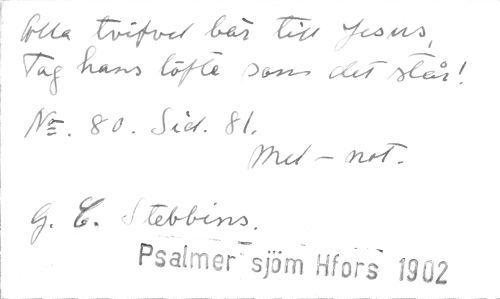 Alla tvifvel bär till Jesus,
Tag hans löfte som det står!
No. 80. Sid. 81.
Med - not.
G. C. Stebbins.
Psalmer sjöm Hfors 1902